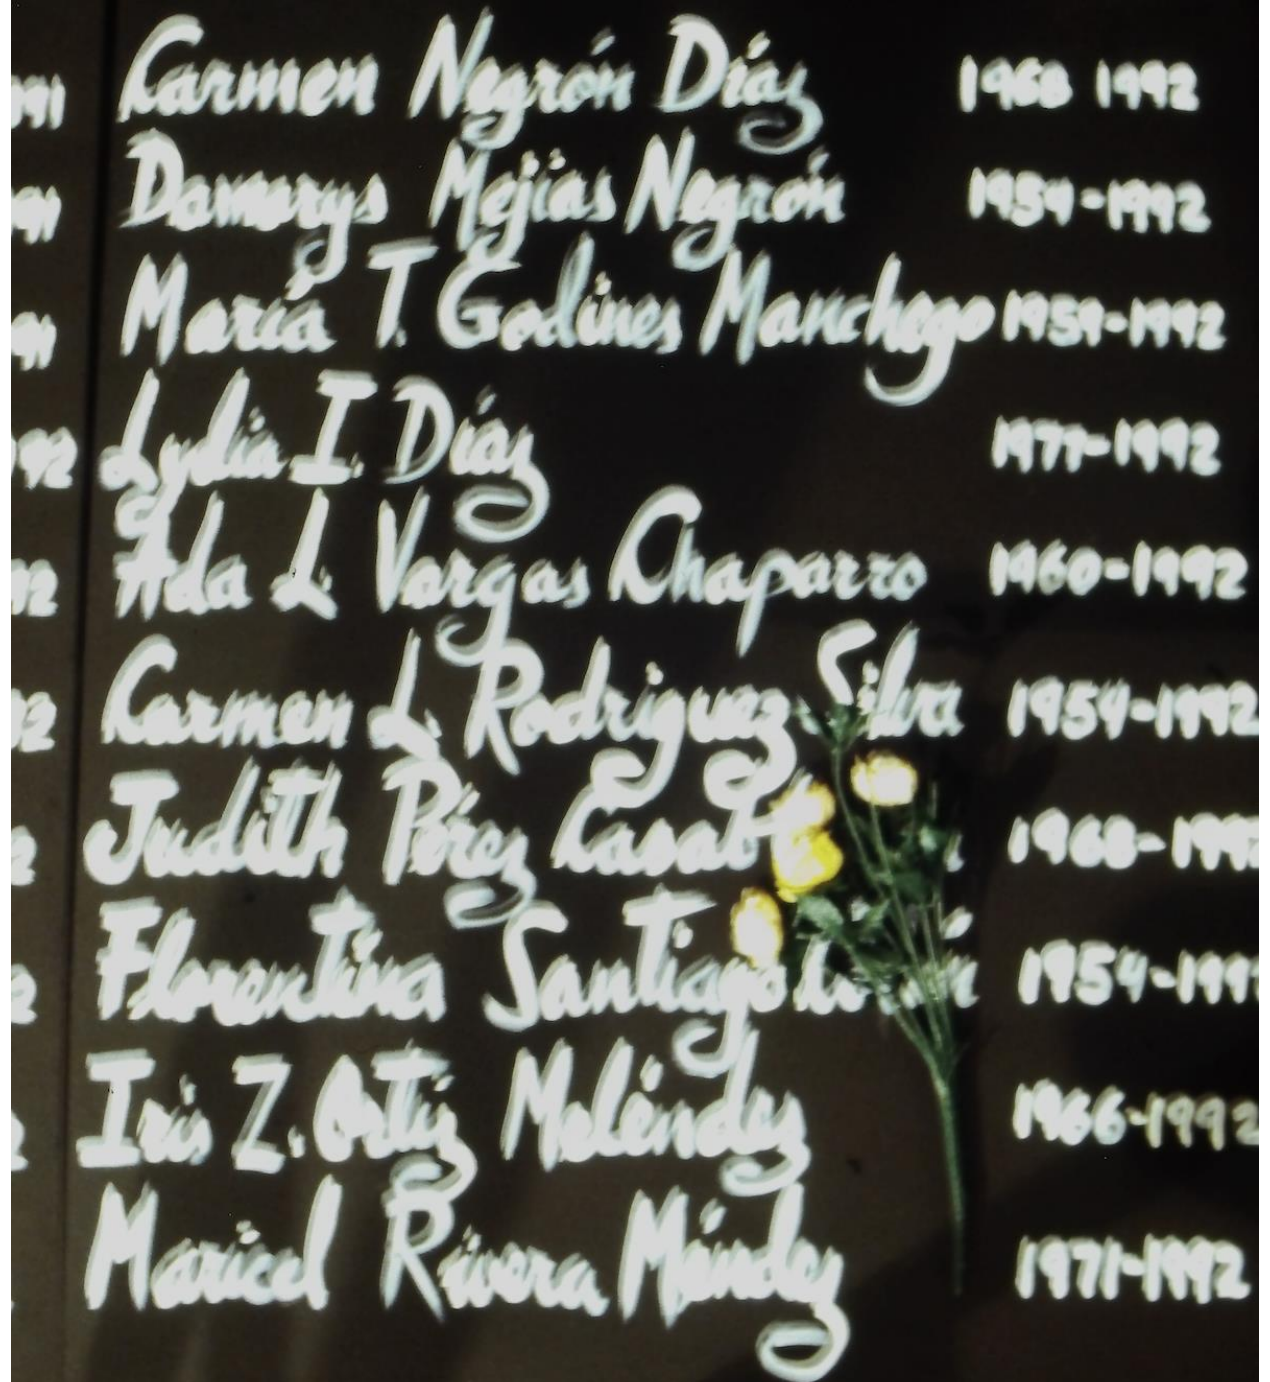 Carmen Negrón Díaz 1968 1992
Damarys Mejías Negrón 1954-1992
María T. Godines Manchego 1959-1992
Lydia I. Díaz 1977-1992
Ada L. Vargas Chaparro 1960-1992
Carmen L. Rodriguez Silva 1954-1992
Judith Pérez 1968-1992
Florentina Santiago 1954-1992
Iris Z. Ortiz Meléndez 1966-1992
Maricel Rivera Méndez 1971-1992